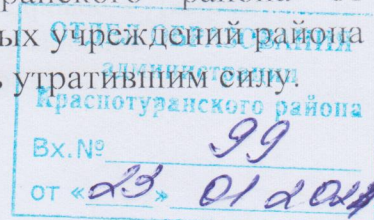 ранского района
ых учреждений района
ь утратившим силу.
ОТДЕЛ ОБРАЗОВАНИЯ
администрации
Краснотуранского района
Вх.№ 99
от «23» 01 202